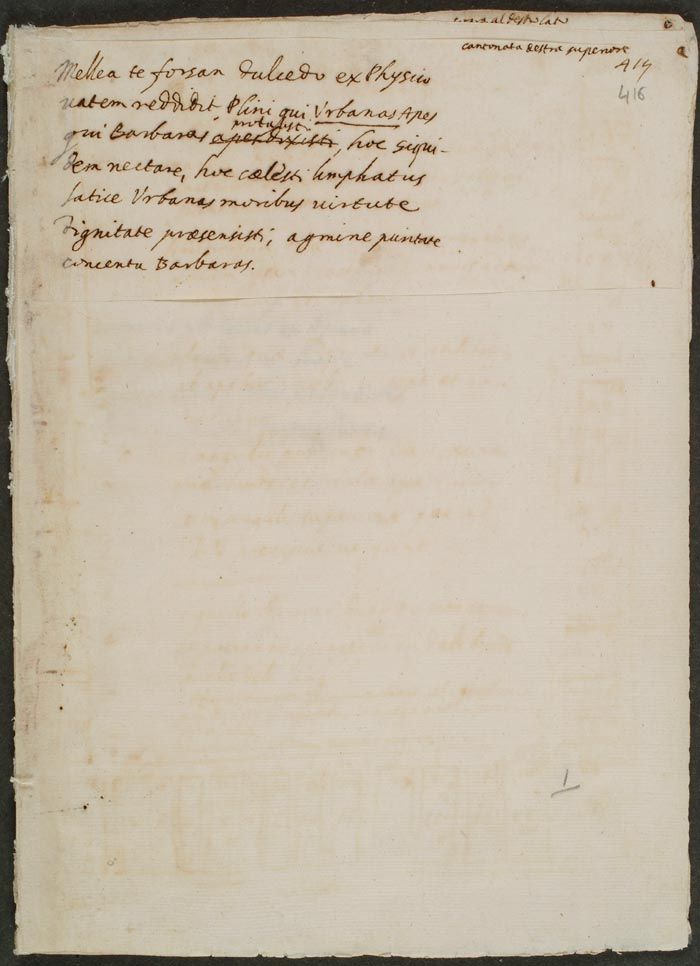 cantonata destra superiore
417
416
Mellea te forsan dulcedo ex Physico
uatem reddidit Plini qui Vrbanas Apes
protulisti
qui Barbaras aperdixisti, hoc siqui-
dem nectare, hoc cælesti limphatus
latice Vrbanas moribus uirtute
dignitate præsensisti, agmine puritate
concentu Barbaras.
1